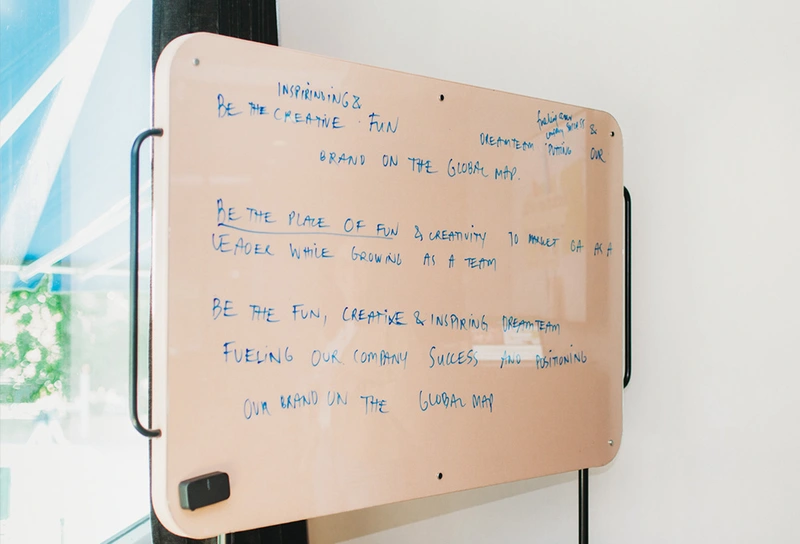 INSPIRINDING &
BE THE CREATIVE · FUN
fueling our
company success &
DREAMTEAM PUTTING OUR
BRAND ON THE GLOBAL MAP.
BE THE PLACE OF FUN & CREATIVITY TO MARKET OA AS A
LEADER WHILE GROWING AS A TEAM
BE THE FUN, CREATIVE & INSPIRING DREAMTEAM
FUELING OUR COMPANY SUCCESS AND POSITIONING
OUR BRAND ON THE GLOBAL MAP